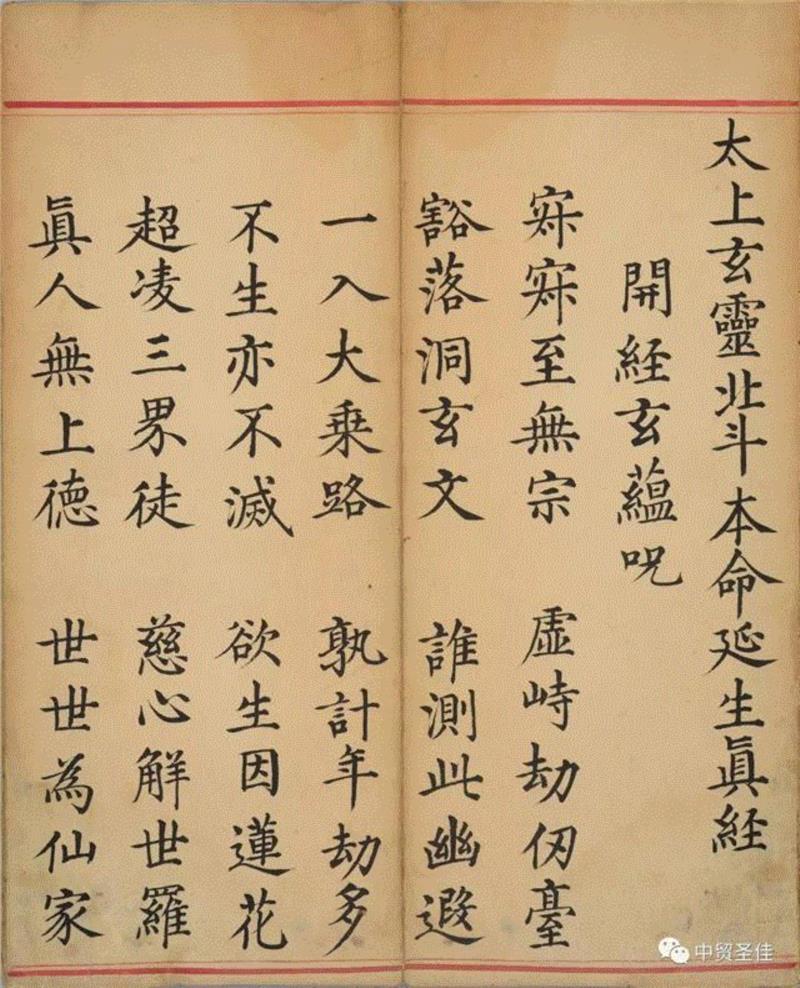 太上玄靈北斗本命延生眞経
開経玄蘊呪
寂寂至無宗 虛峙劫仞臺
豁落洞玄文 誰測此幽遐
一入大乗路 孰計年劫多
不生亦不滅 欲生因蓮花
超凌三界徒 慈心解世羅
眞人無上德 世世為仙家
中贸圣佳